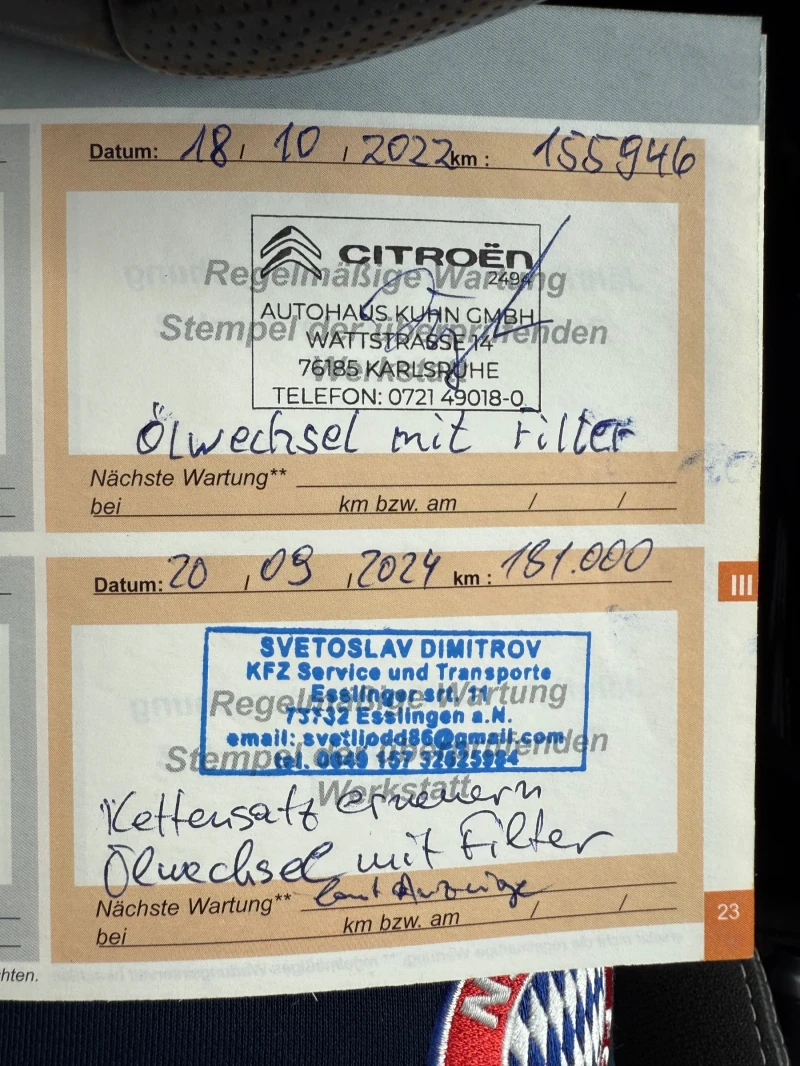 Datum: 18 / 10 / 2022 km : 155946
CITROËN
2494
Regelmäßige Wartung
AUTOHAUS KUHN GMBH
Stempel der überprüfenden
WATTSTRASSE 14
Werkstatt
76185 KARLSRUHE
TELEFON: 0721 49018-0
Ölwechsel mit Filter
Nächste Wartung**
bei km bzw. am / /
Datum: 20 / 09 / 2024 km : 181.000
III
SVETOSLAV DIMITROV
KFZ Service und Transporte
Esslinger srt. 11
Regelmäßige Wartung
73732 Esslingen a.N.
email: svetljodd86@gmail.com
Stempel der überprüfenden
tel. 0049 157 32625984
Werkstatt
Kettensatz erneuern
Ölwechsel mit Filter
Nächste Wartung** laut Anzeige
bei km bzw. am / /
23
hten.